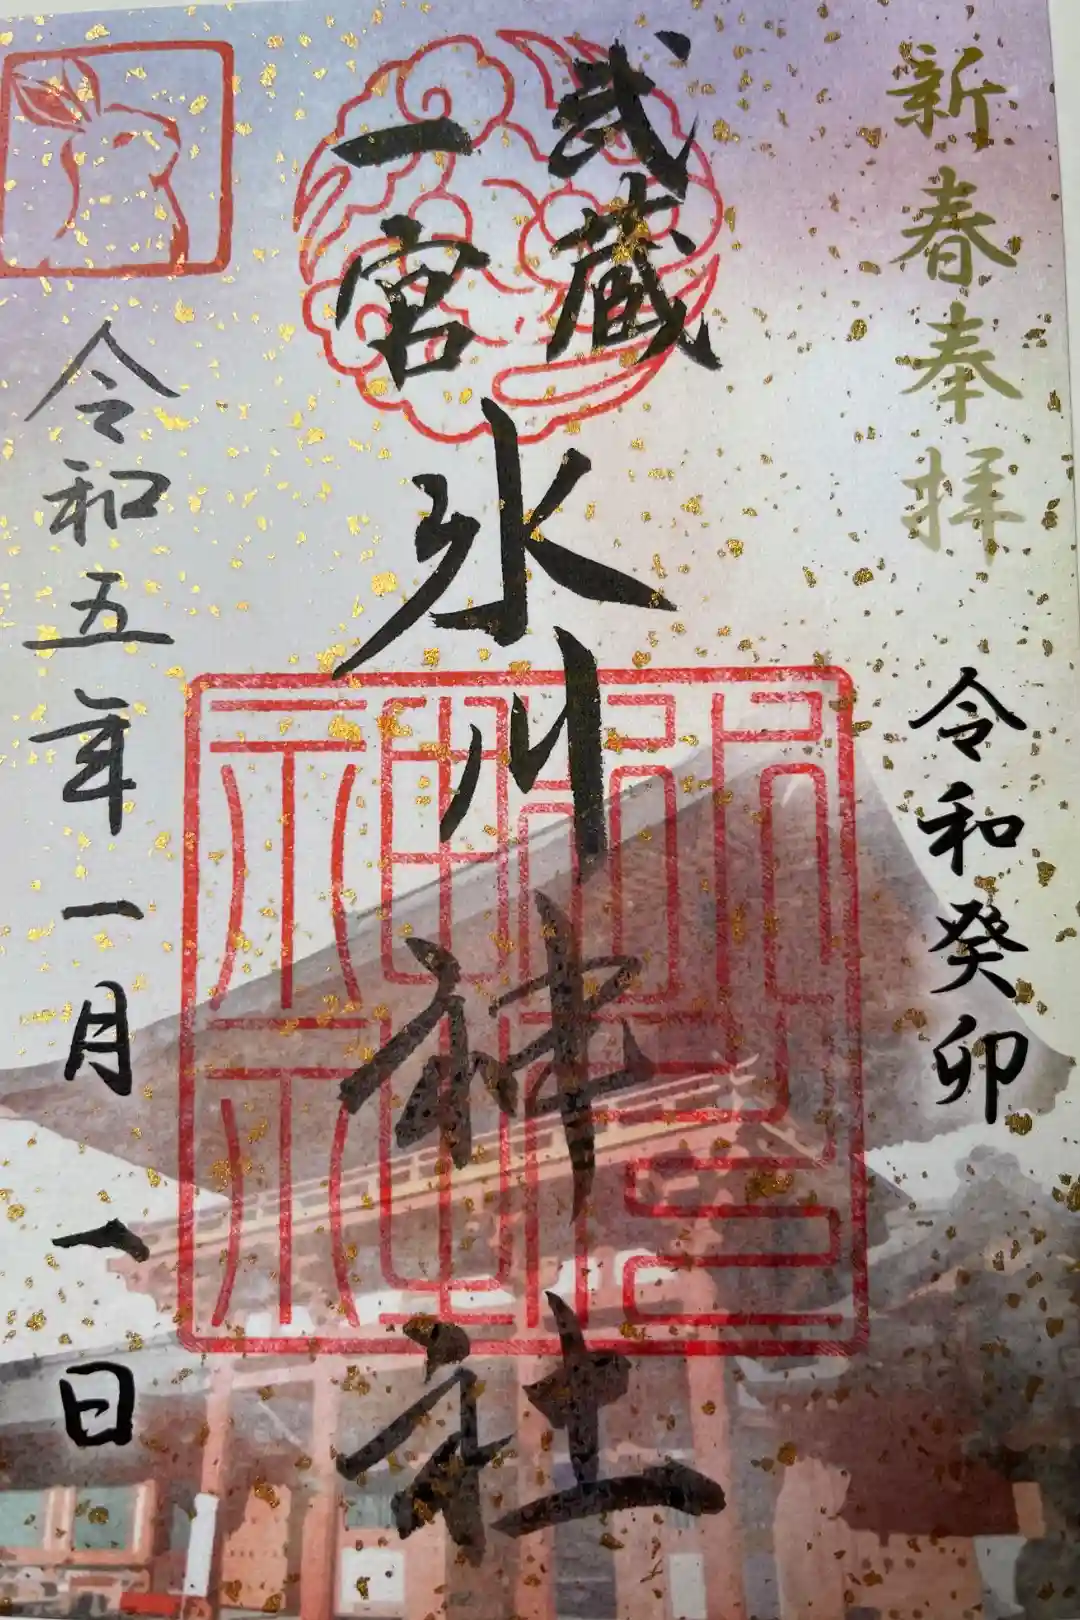 新春奉拝
令和癸卯
武蔵
一宮
氷川神社
令和五年一月一日